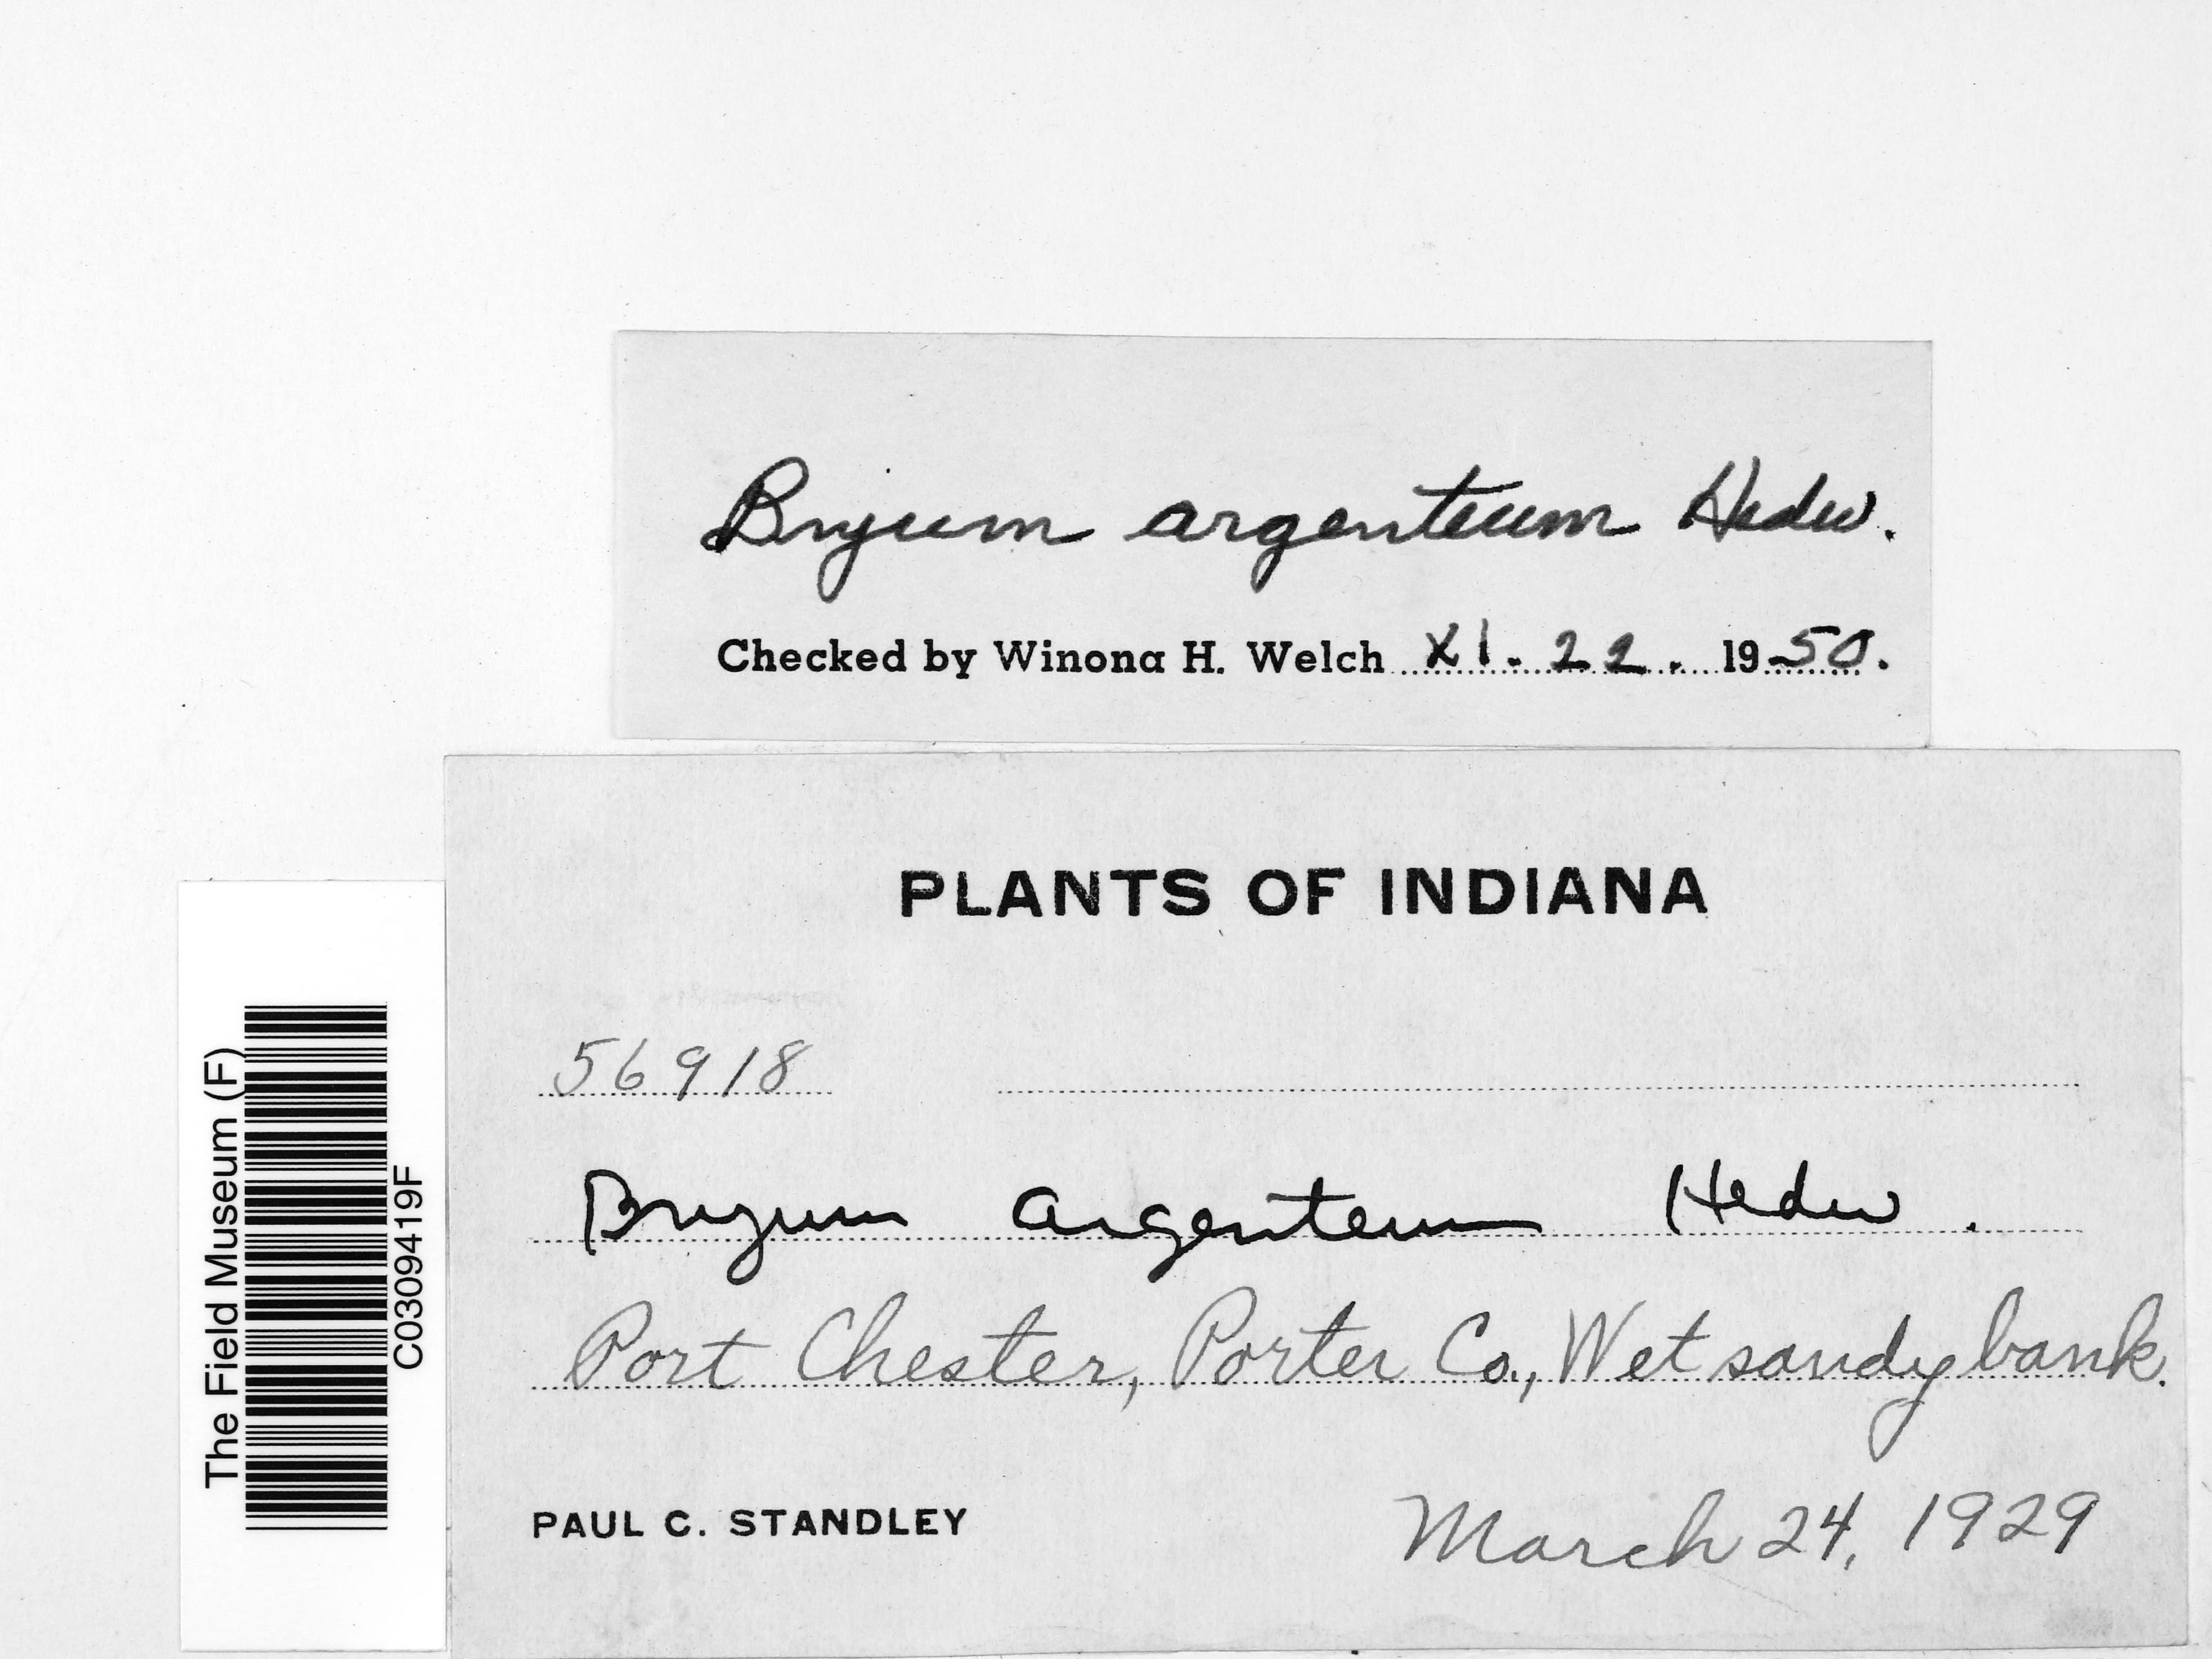 Bryum argenteum Hedw.
Checked by Winona H. Welch XI. 22. 1950.
PLANTS OF INDIANA
56918
Bryum argenteum Hedw.
Port Chester, Porter Co., Wet sandy bank.
PAUL C. STANDLEY March 24, 1929
The Field Museum (F)
C0309419F